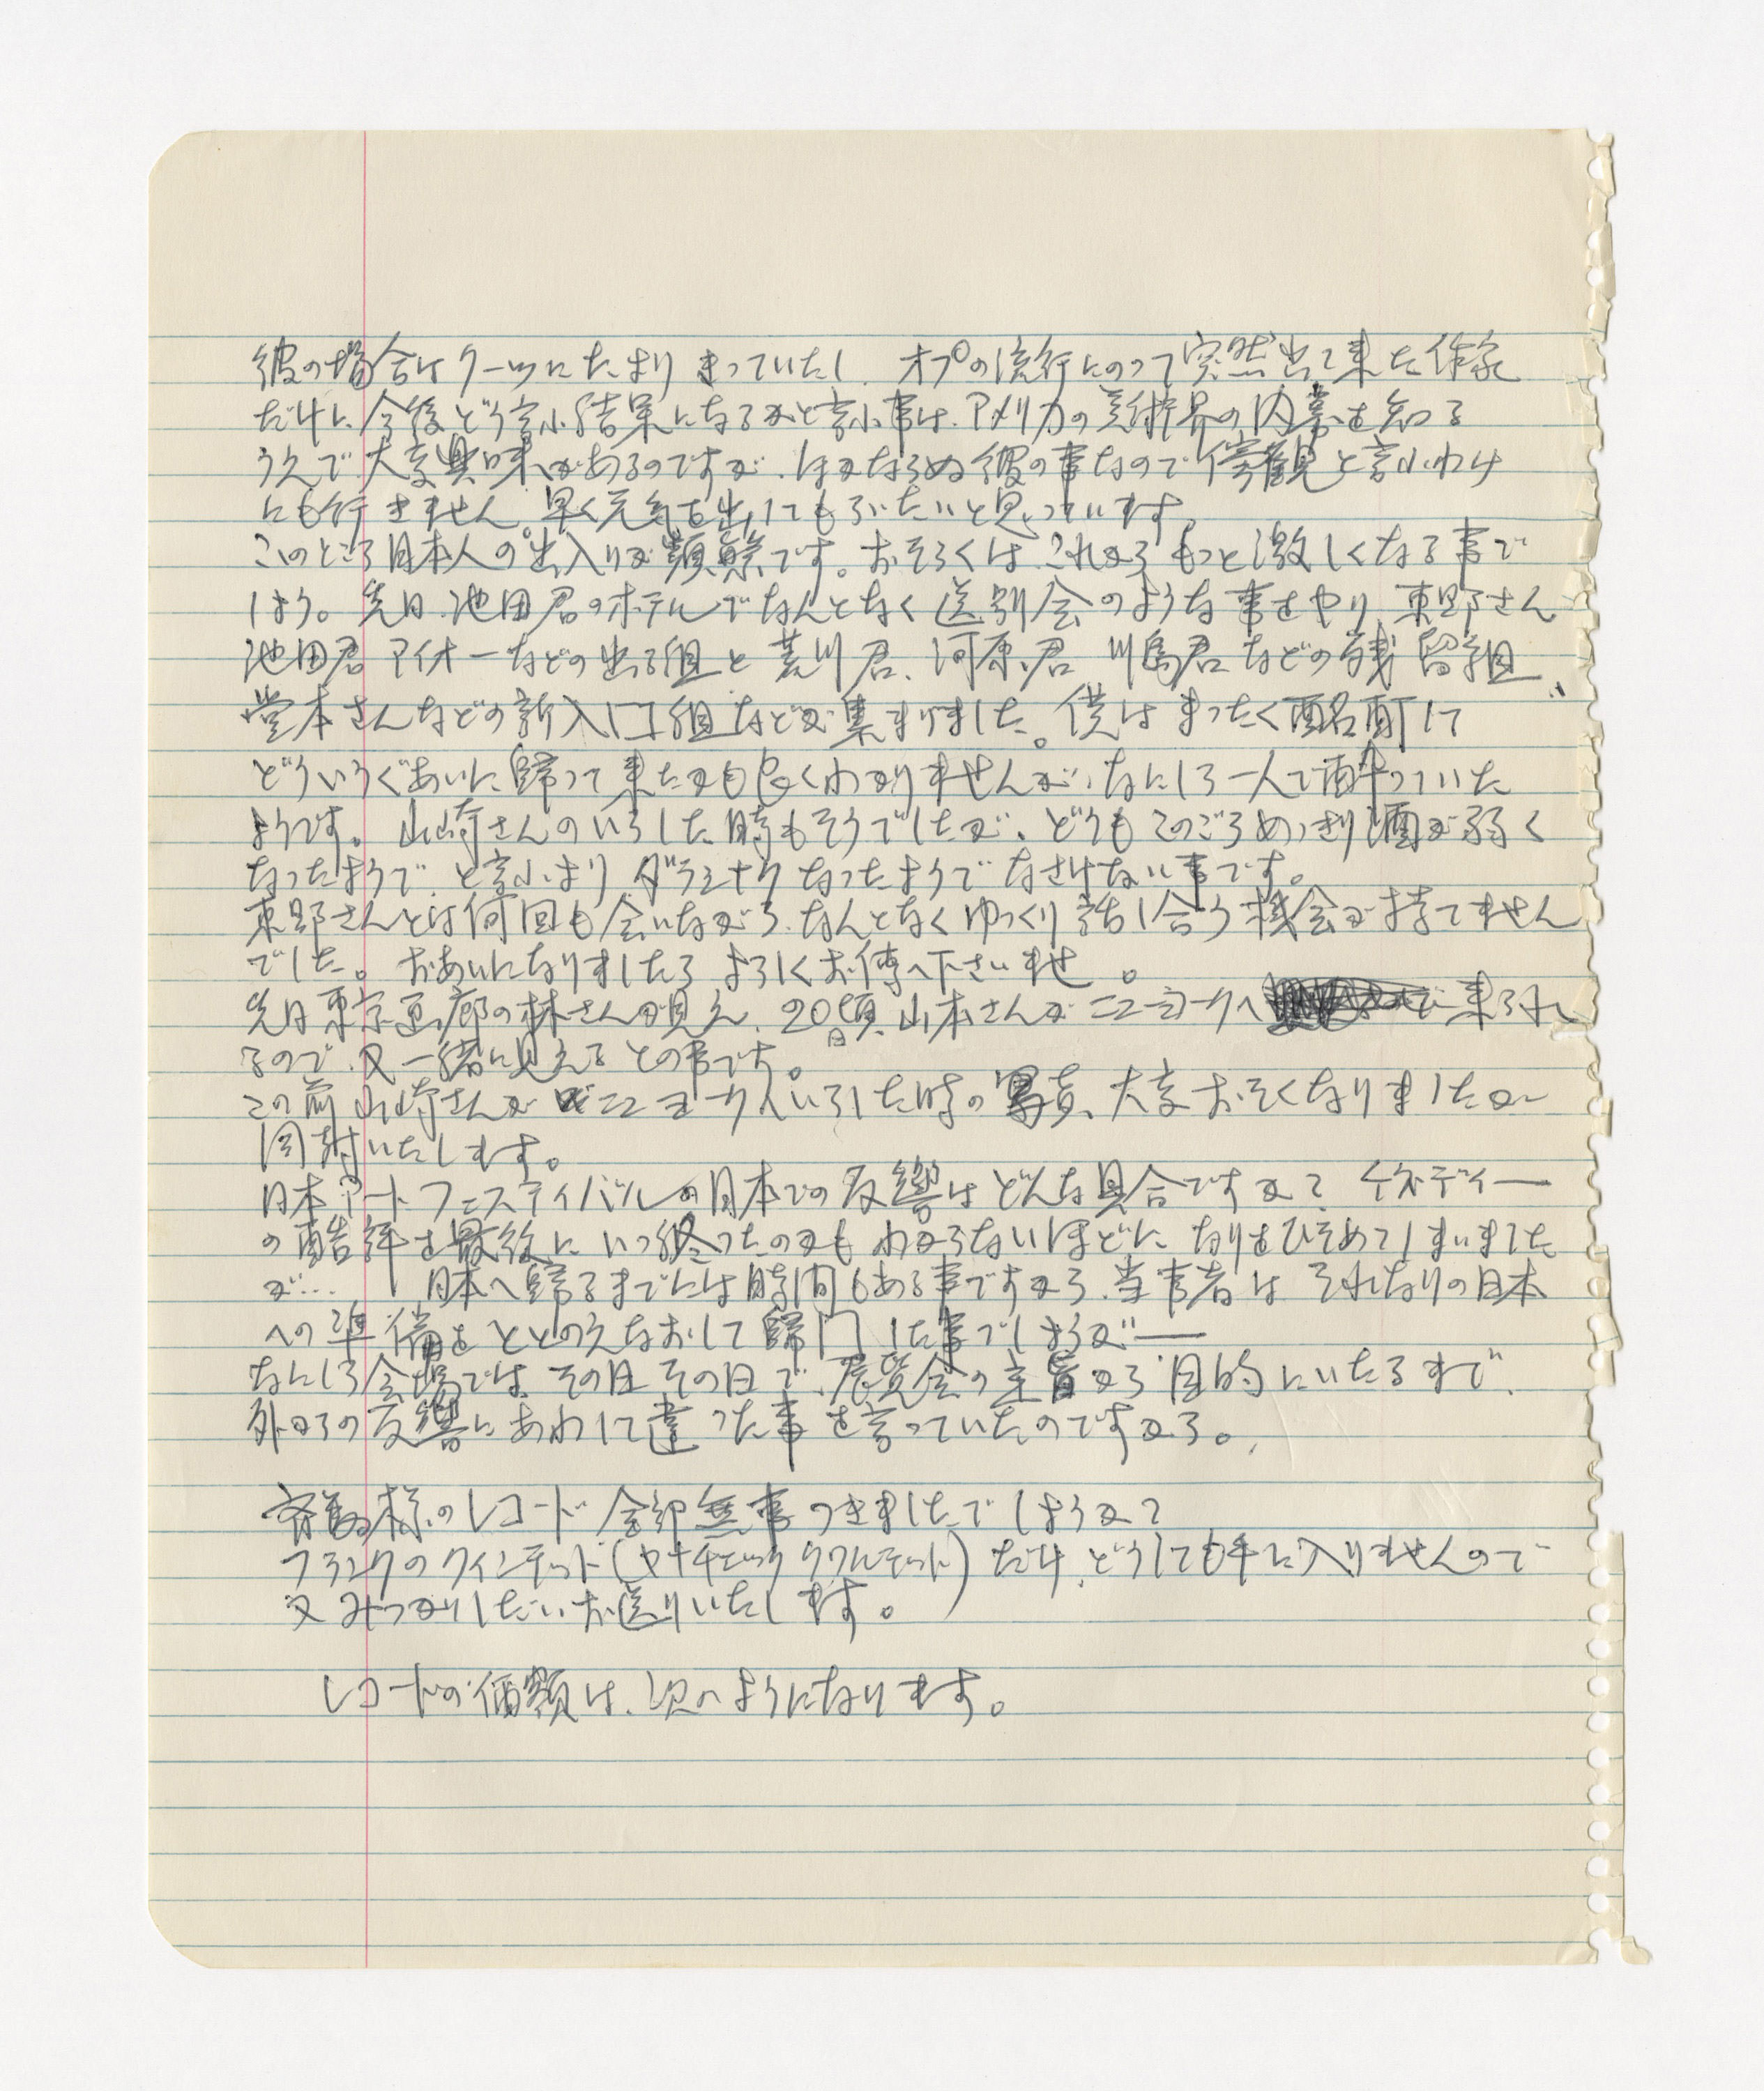 彼の場合はクーツにたより きっていたし、オプの流行にのって突然出て来た作家
だけに、今後どう言ふ結果になるかと言ふ事は、アメリカの美術界の内幕を知る
うえで大変興味があるのですが、ほかならぬ彼の事なので傍観と言ふわけ
にも行きません。早く元気を出してもらいたいと思っています。
このところ日本人の出入りが頻繁です。おそらくは、これからもっと激しくなる事で
しょう。先日、池田君のホテルでなんとなく送別会のような事をやり、東野さん
池田君 アイオーなどの出る組と荒川君、河原君 川島君などの残留組、
堂本さんなどの新入門組などが集まりました。僕はまったく酩酊して
どういうぐあいに歸って来たかも良くわかりませんが、なにしろ一人で酔っていた
ようです。山崎さんのいらした時もそうでしたが、どうもこのごろめっきり酒が弱く
なったようで、と言ふより ダラシナク なったようで なさけない事です。
東野さんとは何回も会いながら、なんとなくゆっくり話し合う機会が持てません
でした。おあいになりましたら よろしくお傳へ下さいませ。
先日東京画廊の林さんが見え、20日頃、山本さんが ニューヨークへ 来られ
るので、又一緒に見えるとの事です。
この前 山崎さんが ニューヨークへいらした時の写真、大変おそくなりましたが
同封いたします。
日本アートフェスティバルの日本での反響はどんな具合ですか? ケネディー
の酷評を最後に いつ終ったのかも わからないほどに なりをひそめてしまいました
が… 日本へ歸るまでには時間もある事ですから、当事者は それなりの日本
への準備を ととのえなおして歸 した事でしょうが——
なにしろ会場では、その日その日で、展覧会の主旨から目的にいたるまで、
外からの反響にあわして違った事を言っていたのですから。
齊藤様のレコード 全部無事つきましたでしょうか?
フランクのクィンテット( ) だけ、どうしても手に入りませんので
又 みつかりしだい お送りいたします。
レコードの価額は、次のようになります。